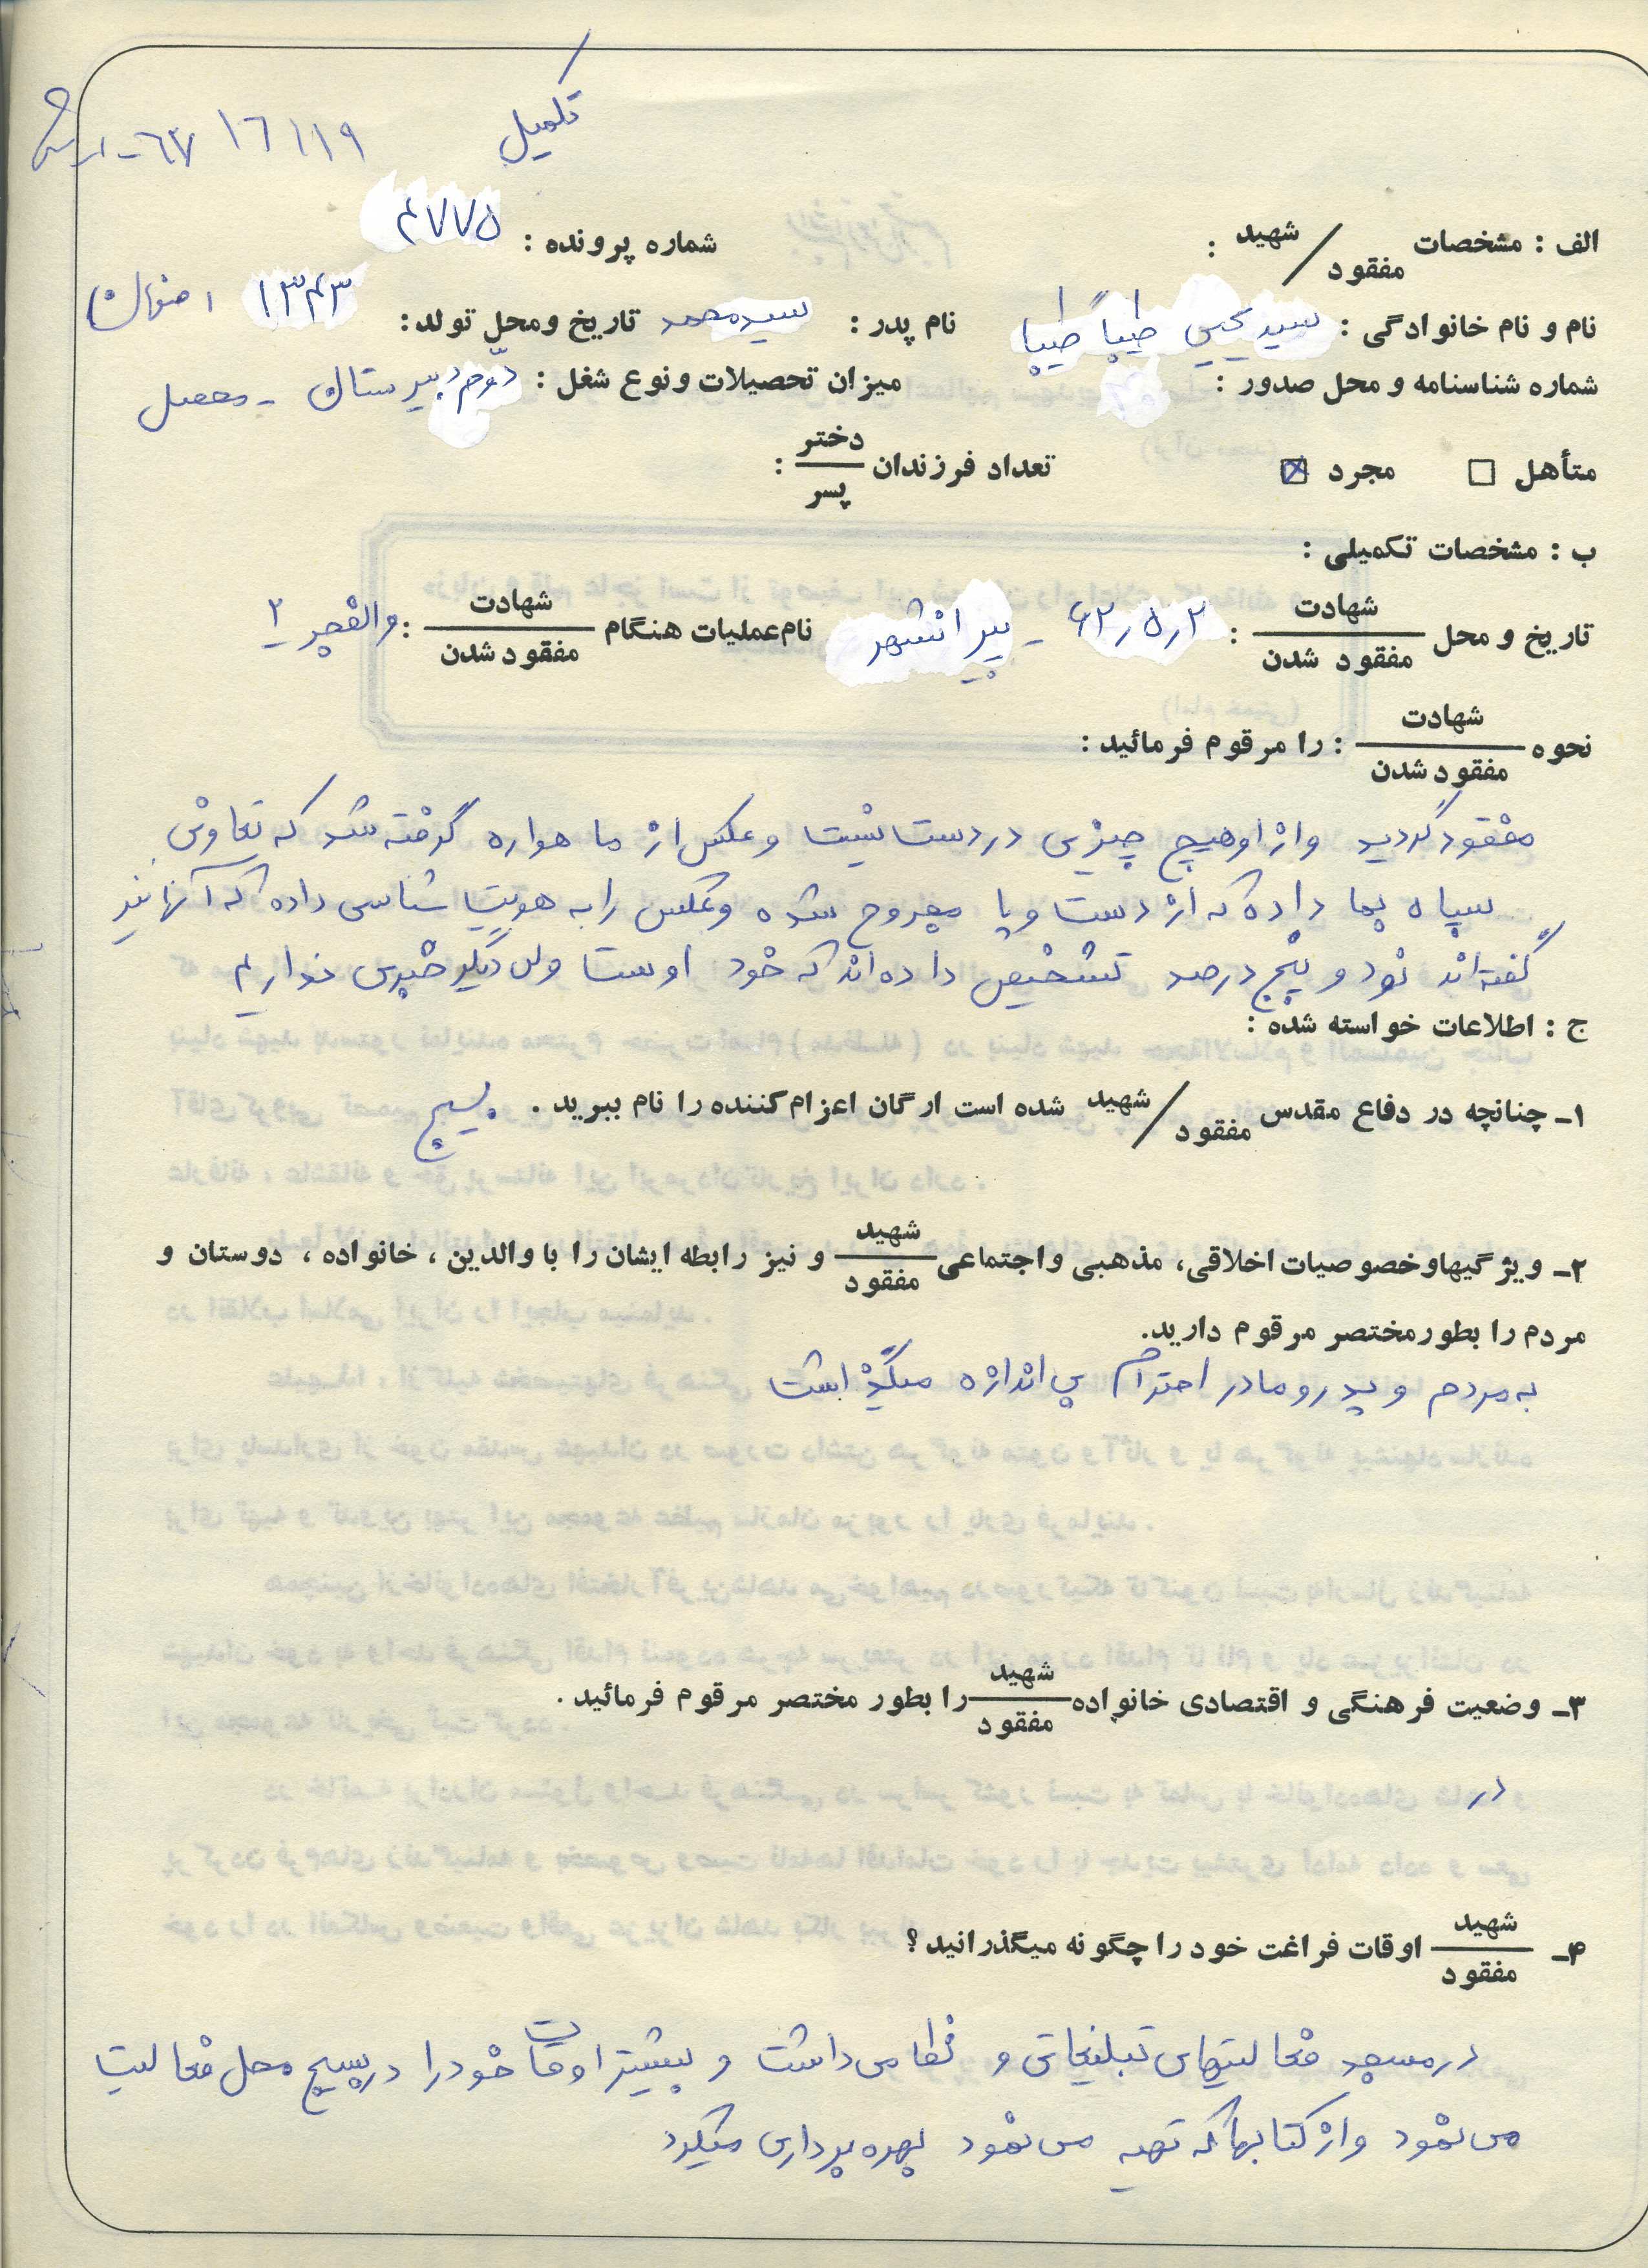 تکمیل
١٦١١٩
الف : مشخصات شهید / مفقود :
شماره پرونده : ۴۷۷۵
نام و نام خانوادگی : سید یحیی طبا طبا نام پدر : سید محمد تاریخ ومحل تولد : ۱۳۴۳ اصفهان
شماره شناسنامه و محل صدور : میزان تحصیلات ونوع شغل : دوم دبیرستان - محصل
متأهل □ مجرد ☒ تعداد فرزندان دختر / پسر :
ب : مشخصات تکمیلی :
تاریخ و محل شهادت / مفقود شدن : ۶۲٫۵٫۲ - پیرانشهر نام عملیات هنگام شهادت / مفقود شدن : والفجر ۲
نحوه شهادت / مفقود شدن : را مرقوم فرمائید :
مفقود گردید واز او هیچ چیزی در دست نیست و عکس از ما هواره گرفته شد که تعاونی
سپاه بما داده که از دست و پا مجروح شده و عکس را به هویت شناسی داده که آنها نیز
گفته اند نود و پنج درصد تشخیص داده اند که خود اوست ولی دیگر خبری نداریم
ج : اطلاعات خواسته شده :
۱ـ چنانچه در دفاع مقدس شهید / مفقود شده است ارگان اعزام کننده را نام ببرید . بسیج
۲ـ ویژگیهاوخصوصیات اخلاقی، مذهبی واجتماعی شهید / مفقود و نیز رابطه ایشان را با والدین ، خانواده ، دوستان و
مردم را بطورمختصر مرقوم دارید.
به مردم و پدر و مادر احترام بی اندازه میگذاشت
۳ـ وضعیت فرهنگی و اقتصادی خانواده شهید / مفقود را بطور مختصر مرقوم فرمائید .
در
۴ـ شهید / مفقود اوقات فراغت خود را چگونه میگذرانید؟
در مسجد فعالیتهای تبلیغاتی و نظامی داشت و بیشتر اوقات خود را در بسیج محل فعالیت
می نمود واز کتابهایکه تهیه می نمود بهره برداری میکرد